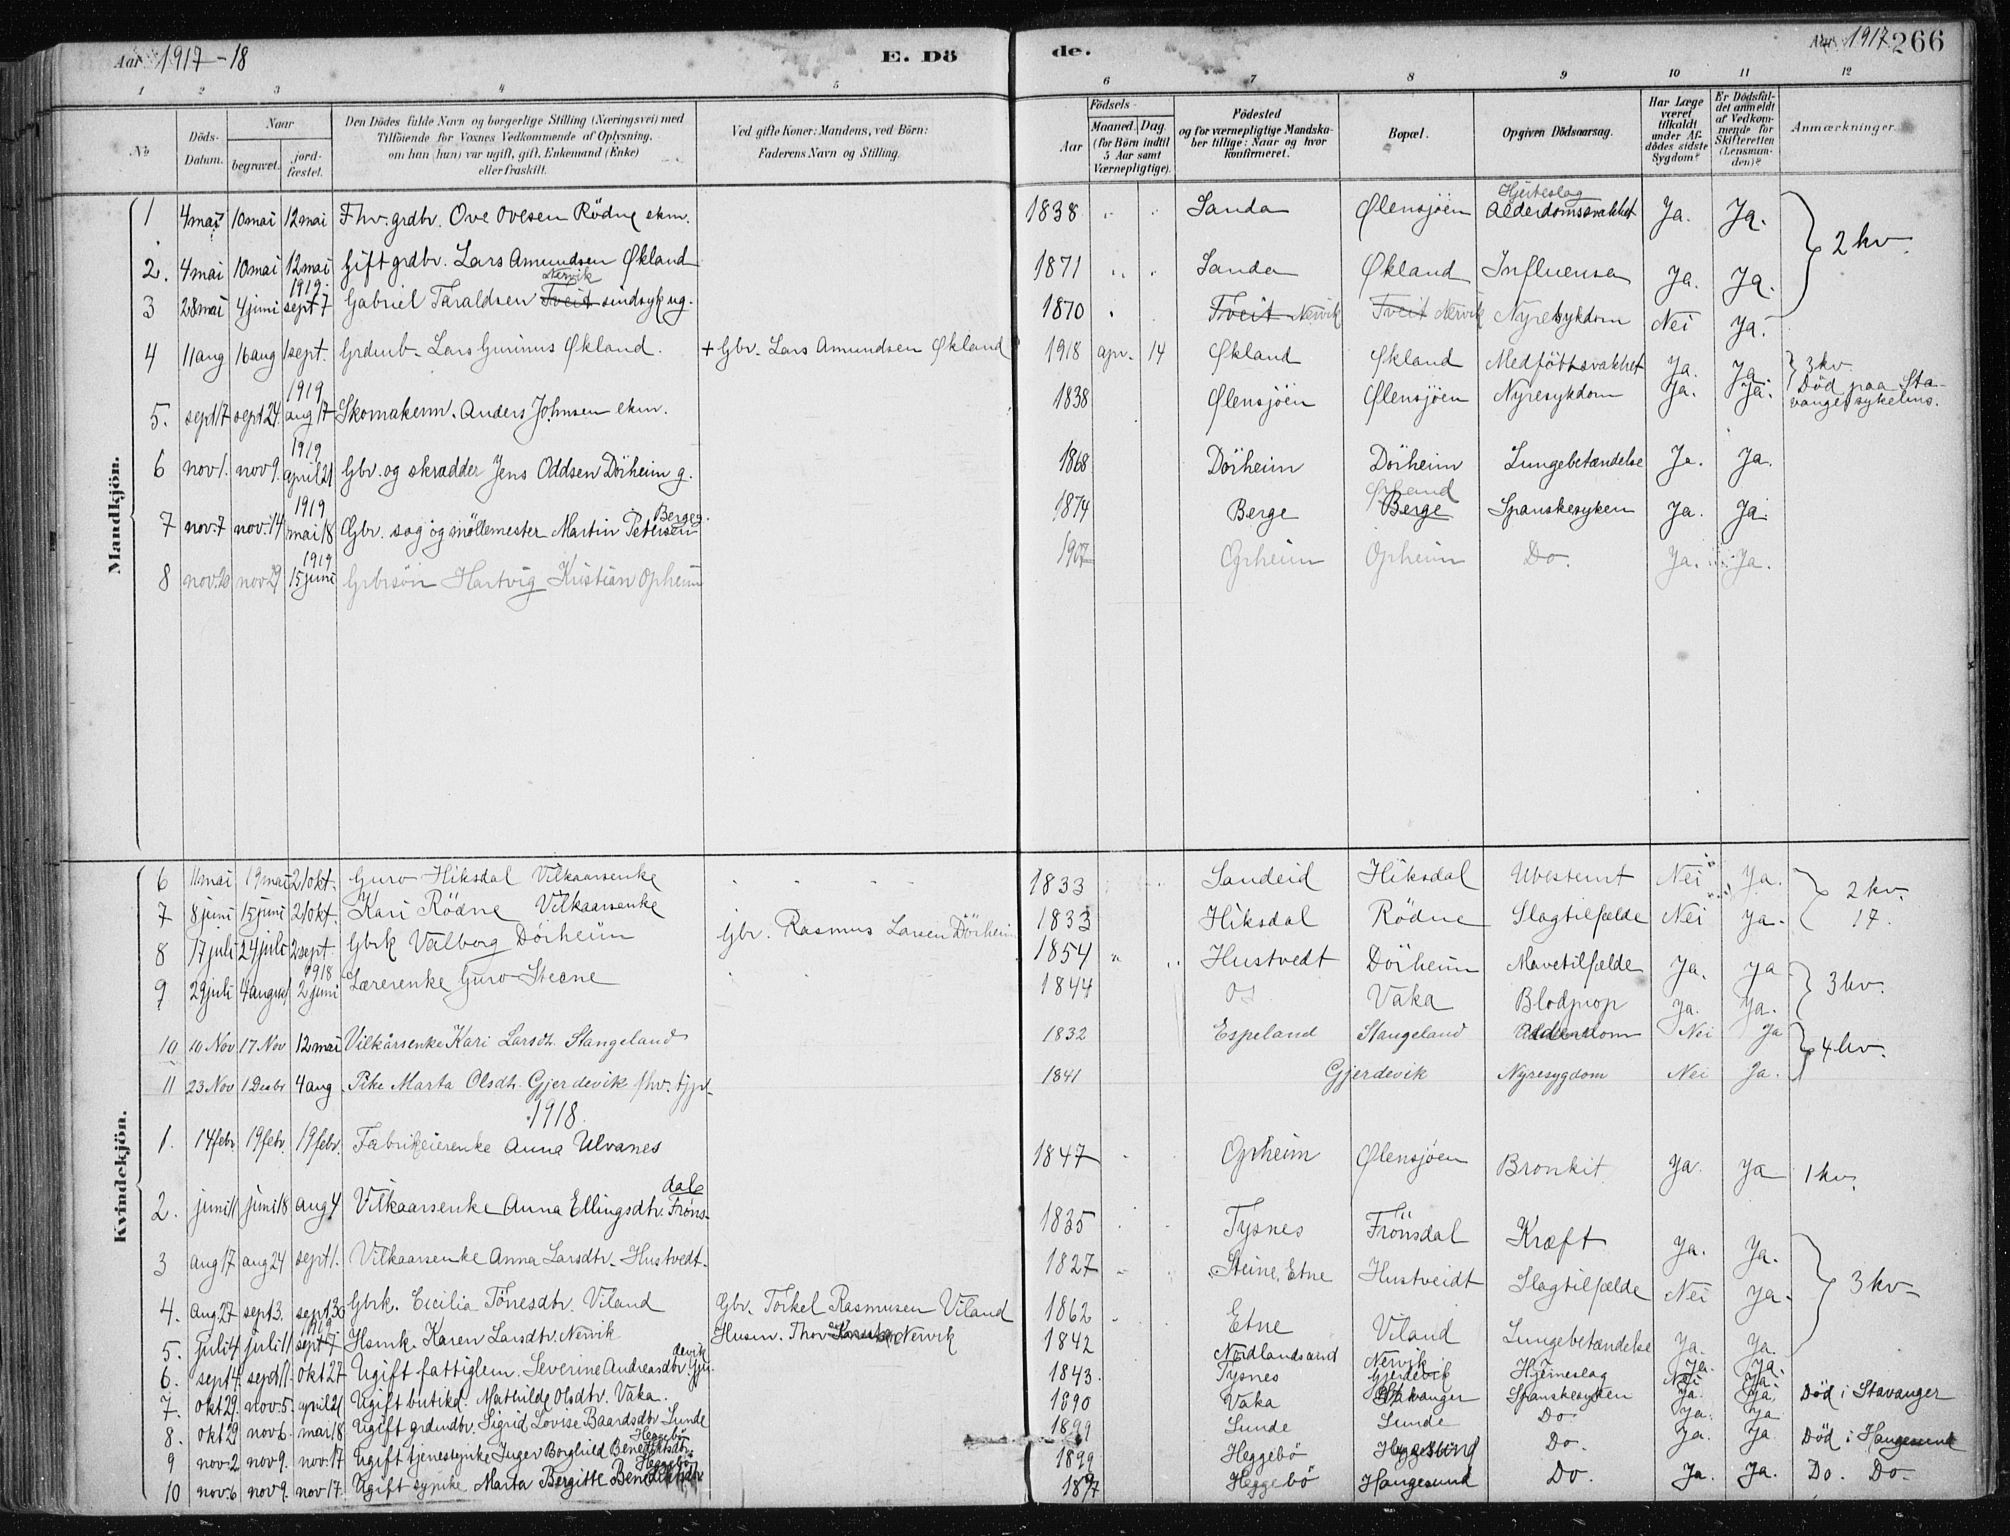 Aar 1917-18 E. Dö de. Aar 1917 266
1 2 3 4 5 6 7 8 9 10 11 12
No Döds-Datum. Naar begravet. jord-fæstet. Den Dödes fulde Navn og borgerlige Stilling (Næringsvei) med Tilföiende for Voxnes Vedkommende af Oplysning, om han (hun) var ugift, gift, Enkemand (Enke) eller fraskilt. Ved gifte Koner: Mandens, ved Börn: Faderens Navn og Stilling. Födsels- Aar Maaned. Dag. (for Börn indtil 5 Aar samt Værnepligtige). Födested og for værnepligtige Mandskaber tillige: Naar og hvor konfirmeret. Bopæl. Opgiven Dödsaarsag. Har Læge været tilkaldt under Afdödes sidste Sygdom? Er Dödsfaldet anmeldt af Vedkommende for Skifteretten (Lensmanden)? Anmærkninger.
Mandkjön.
1 4 mai 10 mai 12 mai Fhv. grdbr. Ove Ovesen Rödne ekm. 1838 Sanda Ølensjöen Hjerteslag Alderdomssvakhet Ja. Ja. 2 kv.
2. 4 mai 10 mai 12 mai Gift grdbr. Lars Amundsen Økland 1871 Sanda Økland Influensa Ja. Ja.
3 28 mai 4 juni 1919 sept 7 Gabriel Taraldsen Tveit Nervik sindsyk ug. 1870 Tveit Nervik Tveit Nervik Nyresykdom Nei Ja.
4 11 aug 16 aug 1 sept. Grdmb. Lars Gurinus Økland. + Gbr. Lars Amundsen Økland 1918 apr. 14 Økland Økland Medfödt svakhet Ja. Ja. 3 kv.
5. sept 17 sept 24 1919 aug 17 Skomakerm. Anders Johnsen ekm. 1838 Ølensjöen Ølensjöen Nyresykdom Ja. Ja. Död paa Stavanger sykehus.
6 nov 1. nov 9. 1919 april 21 Gbr. og skrædder Jens Oddsen Dörheim g. 1868 Dörheim Dörheim Lungebetændelse Ja. Ja.
7 nov. 7 nov. 14 1919 mai 18 Gbr. sag og möllemester Martin Petersen Berge g. 1874 Berge Berge Spanskesyken Ja. Ja.
8 nov. 20 nov 29 1919 15 juni Grbrsön Hartvig Kristian Opheim 1907 Opheim Opheim Do. Ja. Ja.
Kvindekjön.
6 11 mai 19 mai 21 okt. Guro Hiksdal Vilkaarsenke 1833 Sandeid Hiksdal Ubestemt Nei Ja. 2 kv. 17.
7 8 juni 15 juni 21 okt. Kari Rödne Vilkaarsenke 1833 Hiksdal Rödne Slagtilfælde Nei Ja.
8 17 juli 24 juli 2 sept. Gbrk Valborg Dörheim Gbr. Rasmus Larsen Dörheim 1854 Hustvedt Dörheim Mavetilfælde Ja. Ja 3 kv.
9 29 juli 4 august 1918 2 juni Lærerenke Guro Steene 1844 Vaka Blodprop Ja. Ja.
10 10 Nov 17 Nov 12 mai Vilkårsenke Kari Larsdt. Stangeland 1832 Espeland Stangeland Alderdom Nei Ja 4 kv.
11 23 Nov 1 Decbr 4 aug Pike Marta Olsdtr. Gjerdevik fhv. tjp. 1841 Gjerdevik Nyresygdom Nei Ja.
1918.
1. 14 febr. 19 febr. 19 febr. Fabrikeierenke Anna Ulvanes 1847 Opheim Ølensjöen Bronkit Ja. Ja 1 kv.
2. juni 11 juni 18 aug 4 Vilkaarsenke Anna Ellingsdtr. Frönsdal 1835 Tysnes Frönsdal Kræft Ja. Ja. 3 kv.
3 aug 17 aug 24 sept 1. Vilkaarsenke Anna Larsdtr. Hustvedt. 1827 Steine, Etne Hustveidt Slagtilfælde Nei Ja.
4. aug. 27 sept 3. sept 30 Gbrk. Cecilia Tönesdtr. Viland Gbr. Torkel Rasmusen Viland 1862 Etne Viland Lungebetændelse Ja. Ja.
5. juli 4 juli 11 1919 sept 7 Hsmk. Karen Larsdtr. Nervik Husm. Thor Nervik 1842 Nordlandsand Nervik Hjerneslag Ja. Ja.
6. sept 4. sept 11. okt 27 Ugift fattiglem. Severine Andreasdtr. Gjerdevik 1843. Tysnes Gjerdevik Nei Ja.
7. okt 29. nov. 5. april 21 Ugift butikd. Mathilde Olsdtr. Vaka. 1890 Vaka Stavanger Spanskesyken Ja. Ja. Död i Stavanger
8. okt 29 nov 6. mai 18 Ugift grdmdtr. Sigrid Lovise Baardsdtr Sunde 1899 Sunde Sunde Do Ja. Ja
9 nov. 2 nov 9. nov. 17 Ugift tjenestepike Inger Borghild Benediktsdtr. Heggebö 1899 Heggebö Do. Ja. Ja Död i Haugesund
10 nov. 6 nov 9. nov 17. Ugift sypike Marta Bergitte Benediktsdtr Heggebö 1897 Heggebö Haugesund Do. Ja. Ja. Do. Do.